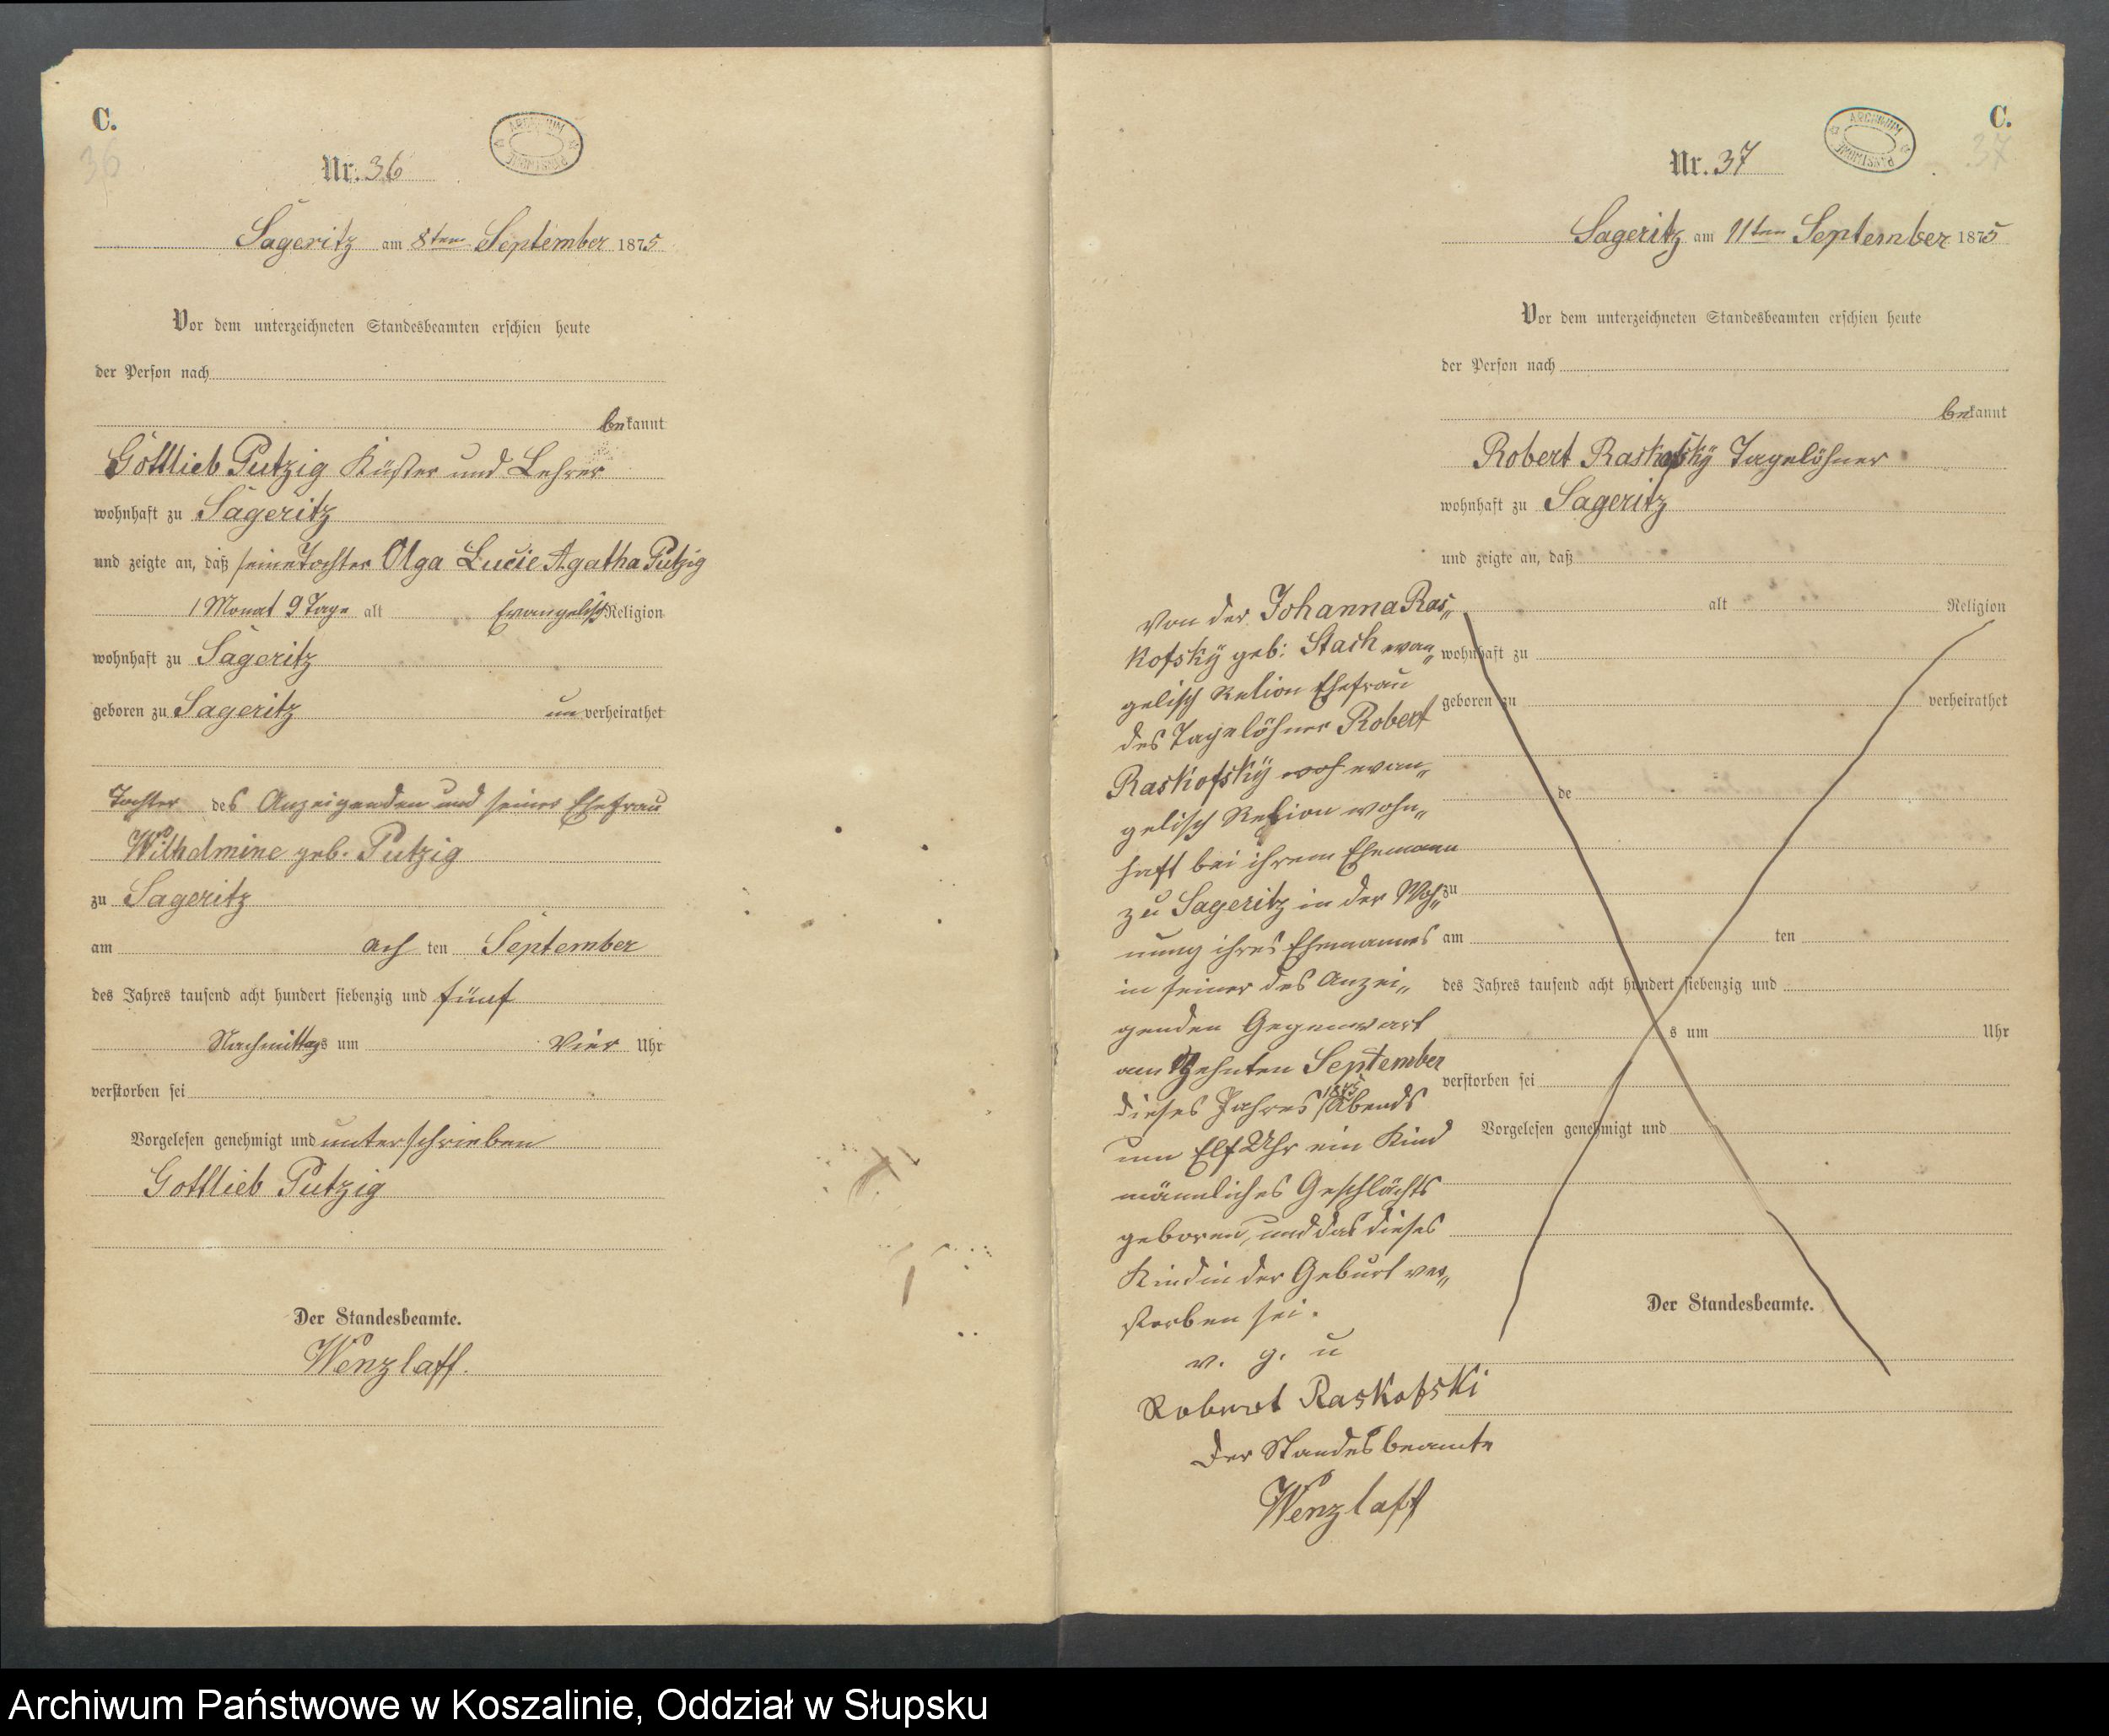 C.
36
Nr. 36
ARCHIWUM PAŃSTWOWE
Sageritz am 8ten September 1875
Vor dem unterzeichneten Standesbeamten erschien heute
der Person nach
bekannt
Gottlieb Putzig Küster und Lehrer
wohnhaft zu Sageritz
und zeigte an, daß seine Tochter Olga Lucie Agatha Putzig
1 Monat 9 Tage alt Evangelisch Religion
wohnhaft zu Sageritz
geboren zu Sageritz unverheirathet
Tochter des Anzeigenden und seiner Ehefrau
Wilhelmine geb. Putzig
zu Sageritz
am ach ten September
des Jahres tausend acht hundert siebenzig und fünf
Nachmittags um Vier Uhr
verstorben sei
Vorgelesen genehmigt und unterschrieben
Gottlieb Putzig
Der Standesbeamte.
Wenzlaff.
C.
37
Nr. 37
ARCHIWUM PAŃSTWOWE
Sageritz am 11ten September 1875
Vor dem unterzeichneten Standesbeamten erschien heute
der Person nach
bekannt
Robert Raskofsky Tagelöhner
wohnhaft zu Sageritz
und zeigte an, daß
alt Religion
wohnhaft zu
geboren zu verheirathet
de
zu
am ten
des Jahres tausend acht hundert siebenzig und
s um Uhr
verstorben sei
Vorgelesen genehmigt und
Der Standesbeamte.
von der Johanna Ras„
kofsky geb: Stach evan„
gelisch Relion Ehefrau
des Tagelöhner Robert
Raskofsky woh evan„
gelisch Relion wohn„
haft bei ihrem Ehemann
zu Sageritz in der Woh„
nung ihres Ehemannes
in seiner des Anzei„
genden Gegenwart
am Zehnten September
dieses Jahres 1875 Abends
um Elf Uhr ein Kind
männliches Geschlächts
geboren, und das dieses
Kind in der Geburt ver„
storben sei.
v. g. u
Robert Raskofski
Der Standesbeamte
Wenzlaff
Archiwum Państwowe w Koszalinie, Oddział w Słupsku